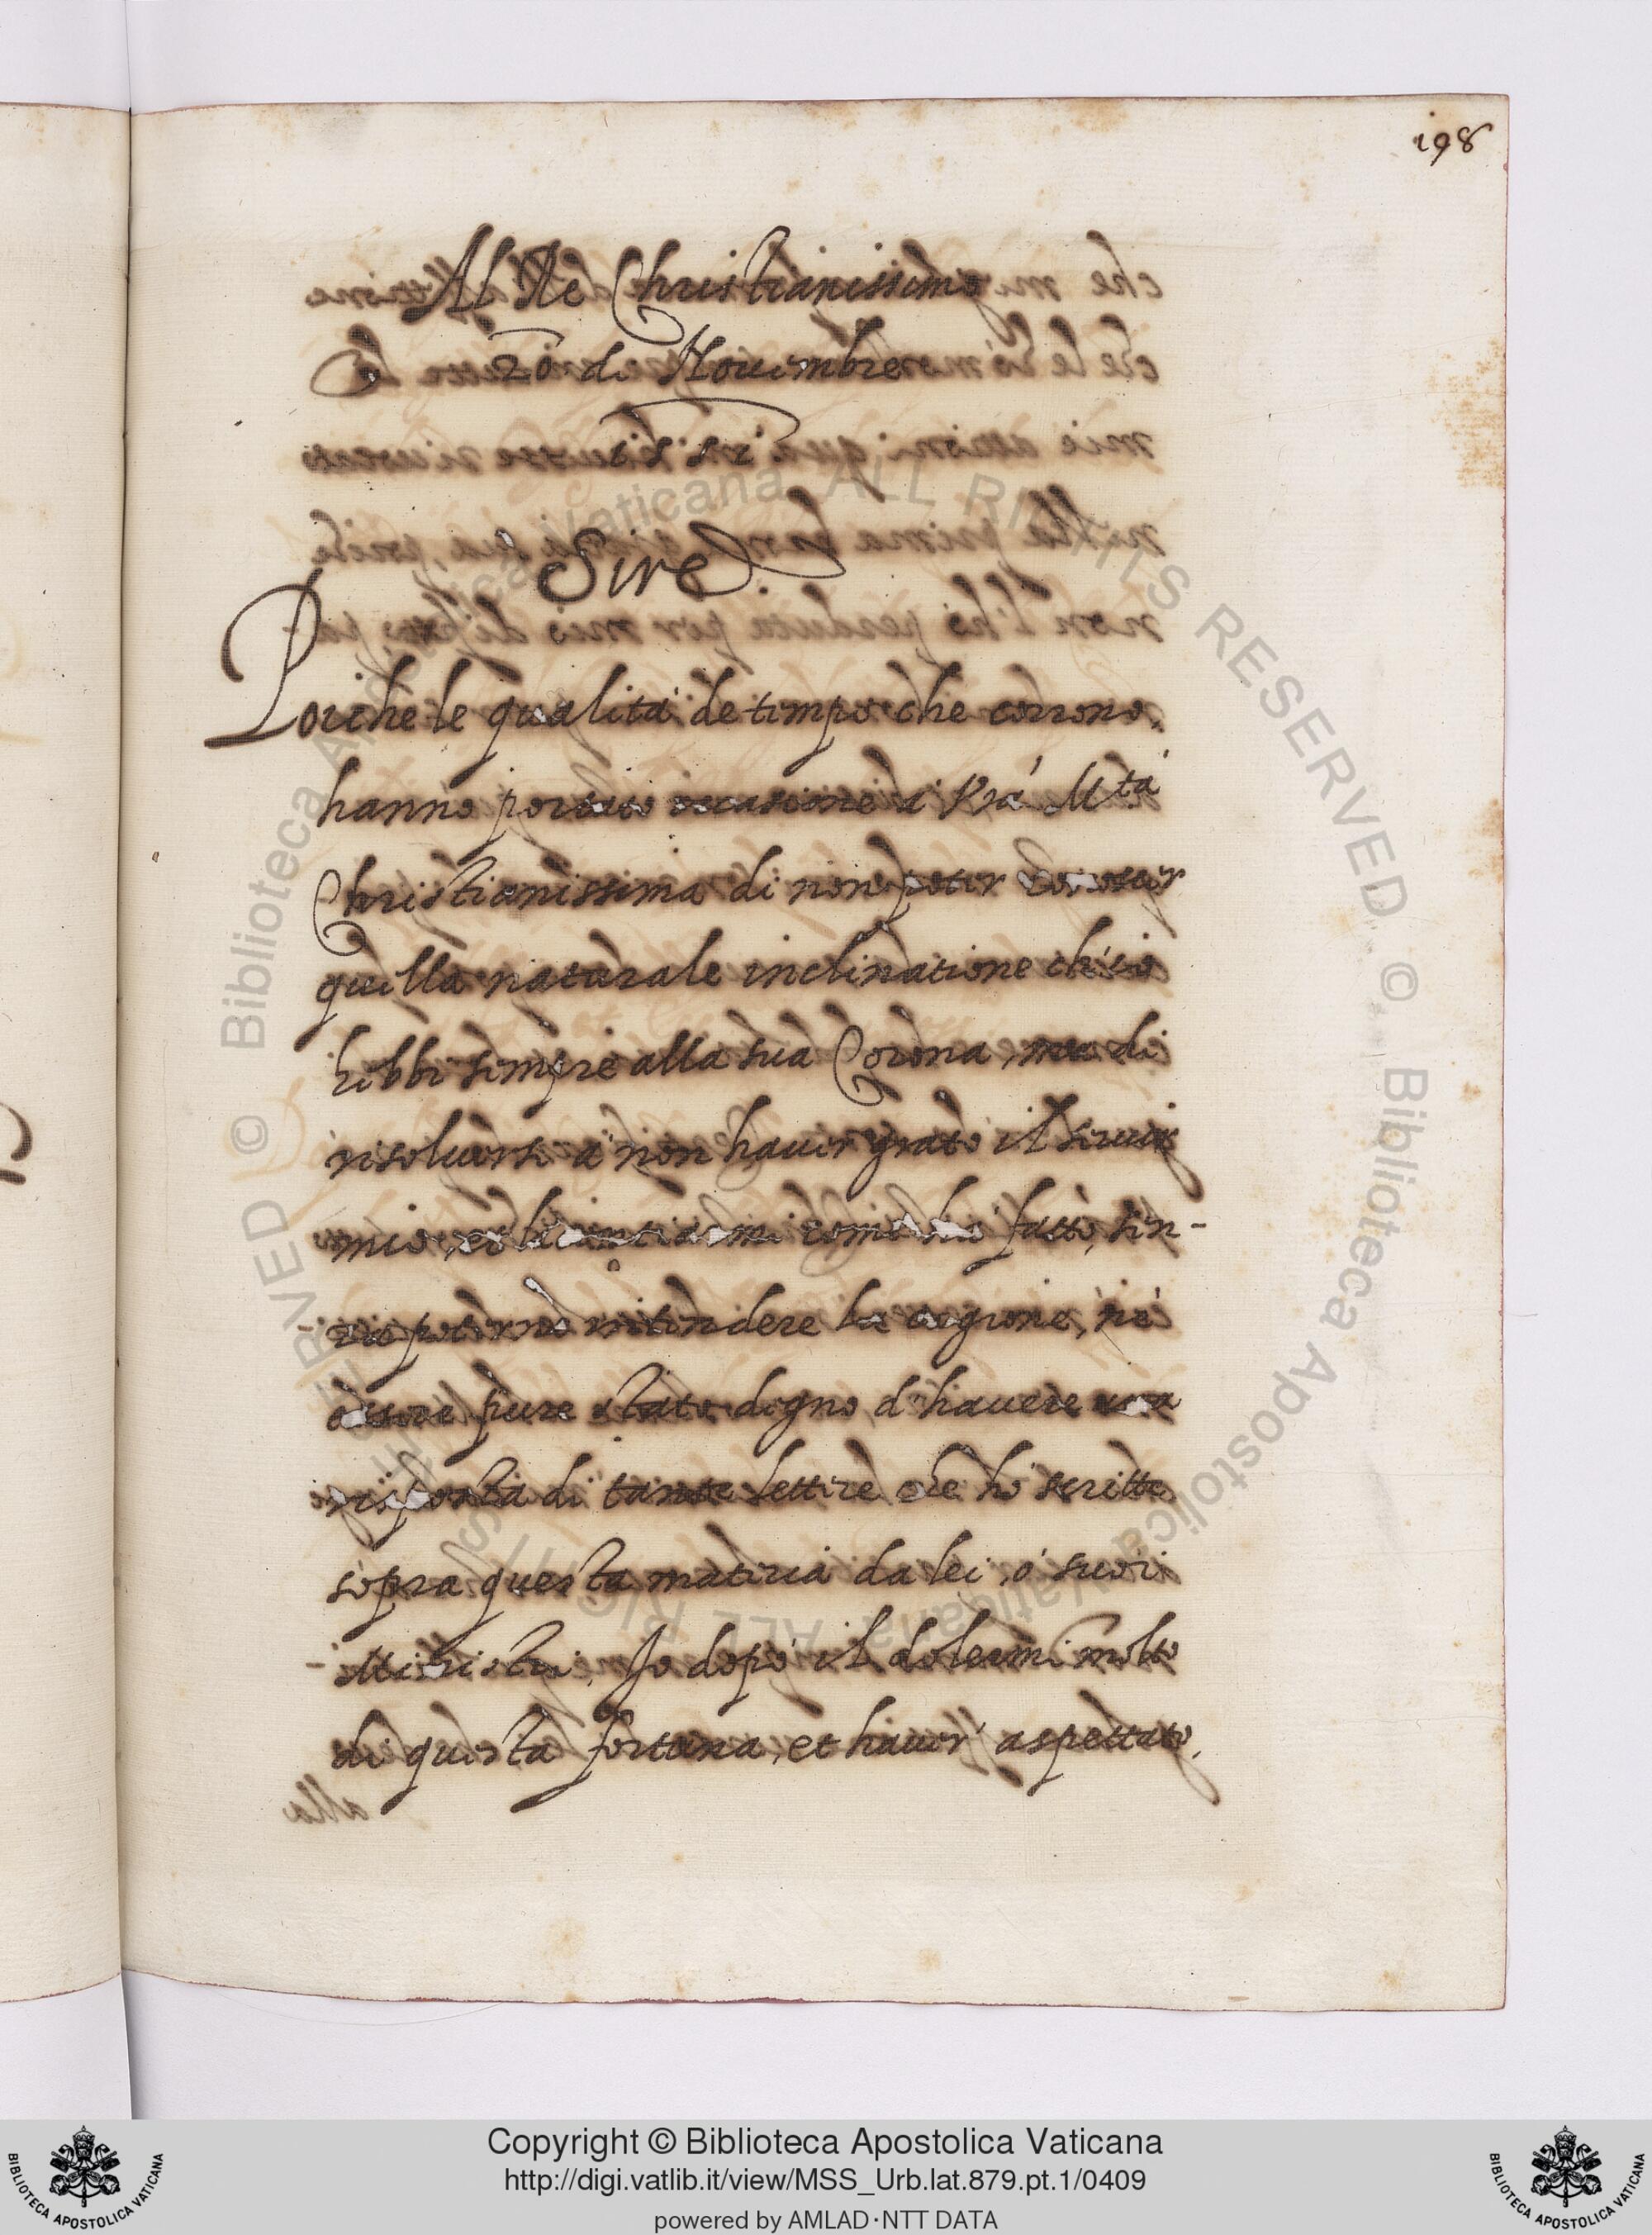 198
Al Re Christianissimo
20 di Novembre
Sire
Poiche le qualità de tempo che corrono,
hanno portato occasione à Vrã Mtà
Christianissima di non poter conoscer
quella naturale inclinatione ch'io
hebbi sempre alla sua Corona, di
risolversi à non haver grato il
mio, come hà fatto, sen-
poterne intendere la cagione, nè
essere pure stato degno d'havere una
risposta di tante lettere che hò scritte
sopra questa materia da lei, ò suoi
Ministri, Io dopò il dolermi molto
di questa fortuna, et haver aspettato
Copyright © Biblioteca Apostolica Vaticana
http://digi.vatlib.it/view/MSS_Urb.lat.879.pt.1/0409
powered by AMLAD·NTT DATA
BIBLIOTECA APOSTOLICA VATICANA
BIBLIOTECA APOSTOLICA VATICANA